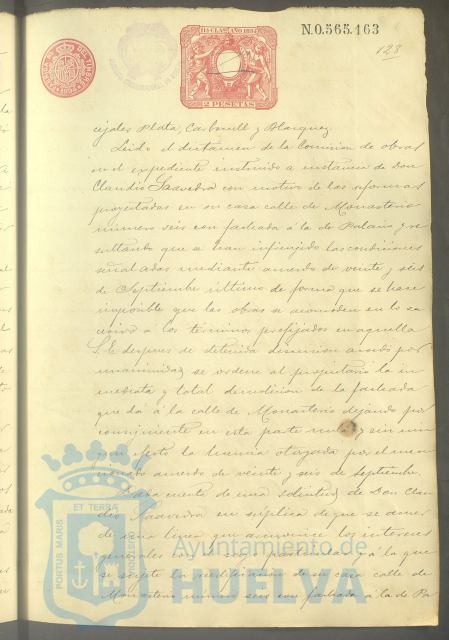 N.0.565.163
123
11ª CLASE AÑO 1894
2 PESETAS
cejales Plata, Carbonell y Blazquez.
Leido el dictamen de la Comision de obras
en el expediente instruido a instancia de Don
Claudio Saavedra con motivo de las reformas
proyectadas en su casa calle de Monasterio
numero seis con fachada á la de Palacio y re
sultando que se han infrinjido las condiciones
señaladas mediante acuerdo de veinte y seis
de Septiembre último de forma que se hace
imposible que las obras se acomoden en lo su
cesivo a los términos prefijados en aquella
S. E. despues de detenida discusion acordó por
unanimidad se ordene al propietario la in
mediata y total demolicion de la fachada
que dá á la calle de Monasterio dejando por
consiguiente en esta parte nula y sin nin
gun efecto la licencia otorgada por el men
cionado acuerdo de veinte y seis de Septiembre.
Dada cuenta de una solicitud de Don Clau
dio Saavedra en súplica de que se acuer
de una linea que armonice los intereses
generales con los particulares y á la que
se sujete la reedificacion de su casa calle de
Monasterio numero seis con fachada á la de Pa
PORTUS MARIS ET TERRAE CUSTODIA
Ayuntamiento de
HUELVA